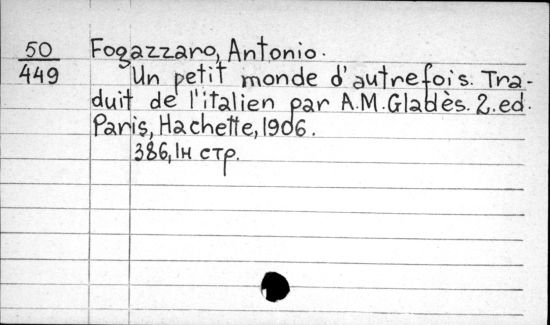 50
449
Fogazzaro, Antonio.
Un petit monde d'autrefois. Tra-
duit de l'italien par A.M.Gladès. 2.ed.
Paris, Hachette, 1906.
386, 1н стр.